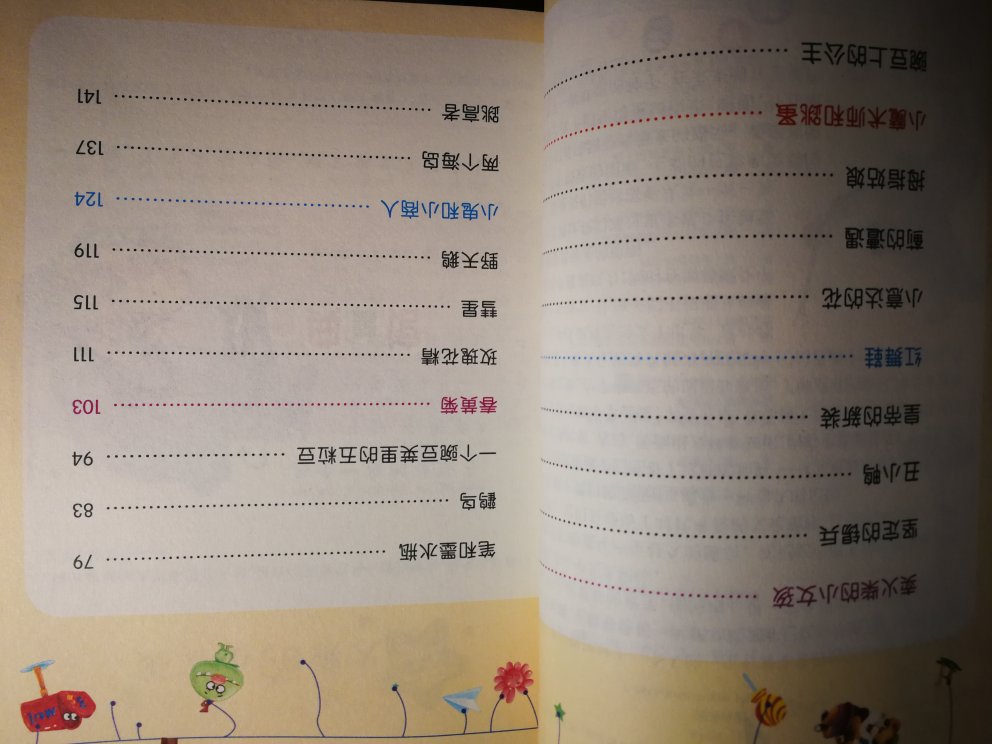 卖火柴的小女孩 ……
坚定的锡兵 ……
丑小鸭 ……
皇帝的新装 ……
红舞鞋 ……
小意达的花 ……
蓟的遭遇 ……
拇指姑娘 ……
小魔术师和跳蚤 ……
豌豆上的公主 ……
笔和墨水瓶 …… 79
鹳鸟 …… 83
一个豌豆荚里的五粒豆 …… 94
春黄菊 …… 103
玫瑰花精 …… 111
彗星 …… 115
野天鹅 …… 119
小鬼和小商人 …… 124
两个海岛 …… 137
跳高者 …… 141